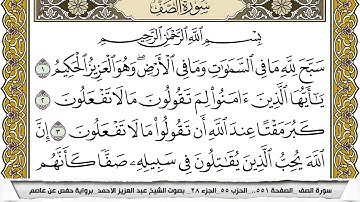 سُورَةُ الصَّفِّ
بِسْمِ اللَّهِ الرَّحْمَٰنِ الرَّحِيمِ
سَبَّحَ لِلَّهِ مَا فِي السَّمَٰوَٰتِ وَمَا فِي الْأَرْضِ ۖ وَهُوَ الْعَزِيزُ الْحَكِيمُ ١
يَٰٓأَيُّهَا الَّذِينَ ءَامَنُوا لِمَ تَقُولُونَ مَا لَا تَفْعَلُونَ ٢
كَبُرَ مَقْتًا عِندَ اللَّهِ أَن تَقُولُوا مَا لَا تَفْعَلُونَ ٣ إِنَّ
اللَّهَ يُحِبُّ الَّذِينَ يُقَٰتِلُونَ فِي سَبِيلِهِۦ صَفًّا كَأَنَّهُم
سورة الصف _الصفحة ٥٥١_ الحزب ٥٥_ الجزء ٢٨_ بصوت الشيخ عبد العزيز الأحمد_ برواية حفص عن عاصم